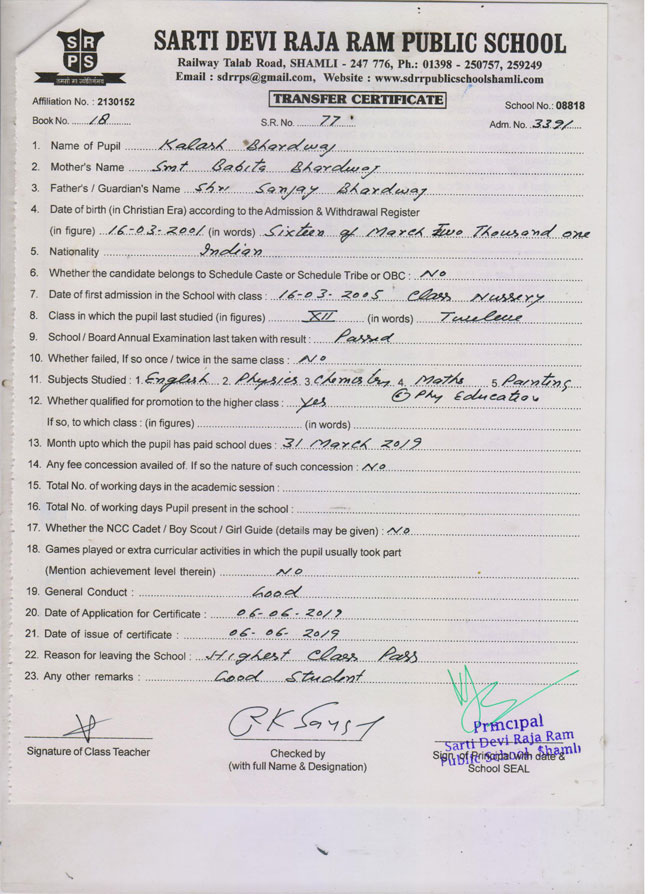 SRPS
तमसो मा ज्योतिर्गमय
SARTI DEVI RAJA RAM PUBLIC SCHOOL
Railway Talab Road, SHAMLI - 247 776, Ph.: 01398 - 250757, 259249
Email : sdrrps@gmail.com, Website : www.sdrrpublicschoolshamli.com
Affiliation No. : 2130152 TRANSFER CERTIFICATE School No.: 08818
Book No. 18 S.R. No. 77 Adm. No. 3391
1. Name of Pupil Kalash Bhardwaj
2. Mother's Name Smt Babita Bhardwaj
3. Father's / Guardian's Name Shri Sanjay Bhardwaj
4. Date of birth (in Christian Era) according to the Admission & Withdrawal Register
(in figure) 16-03-2001 (in words) Sixteen of March Two Thousand one
5. Nationality Indian
6. Whether the candidate belongs to Schedule Caste or Schedule Tribe or OBC : No
7. Date of first admission in the School with class : 16-03-2005 Class Nursery
8. Class in which the pupil last studied (in figures) XII (in words) Tweleve
9. School / Board Annual Examination last taken with result : Passed
10. Whether failed, If so once / twice in the same class : No
11. Subjects Studied : 1. English 2. Physics 3. Chemistry 4. Maths 5. Painting
6 Phy Education
12. Whether qualified for promotion to the higher class : Yes
If so, to which class : (in figures) (in words)
13. Month upto which the pupil has paid school dues : 31 March 2019
14. Any fee concession availed of. If so the nature of such concession : No
15. Total No. of working days in the academic session :
16. Total No. of working days Pupil present in the school :
17. Whether the NCC Cadet / Boy Scout / Girl Guide (details may be given) : No
18. Games played or extra curricular activities in which the pupil usually took part
(Mention achievement level therein) No
19. General Conduct : Good
20. Date of Application for Certificate : 06-06-2019
21. Date of issue of certificate : 06-06-2019
22. Reason for leaving the School : Highest Class Pass
23. Any other remarks : Good Student
Principal
Sarti Devi Raja Ram
Public School, Shamli
Signature of Class Teacher Checked by Sign. of Principal with date &
(with full Name & Designation) School SEAL